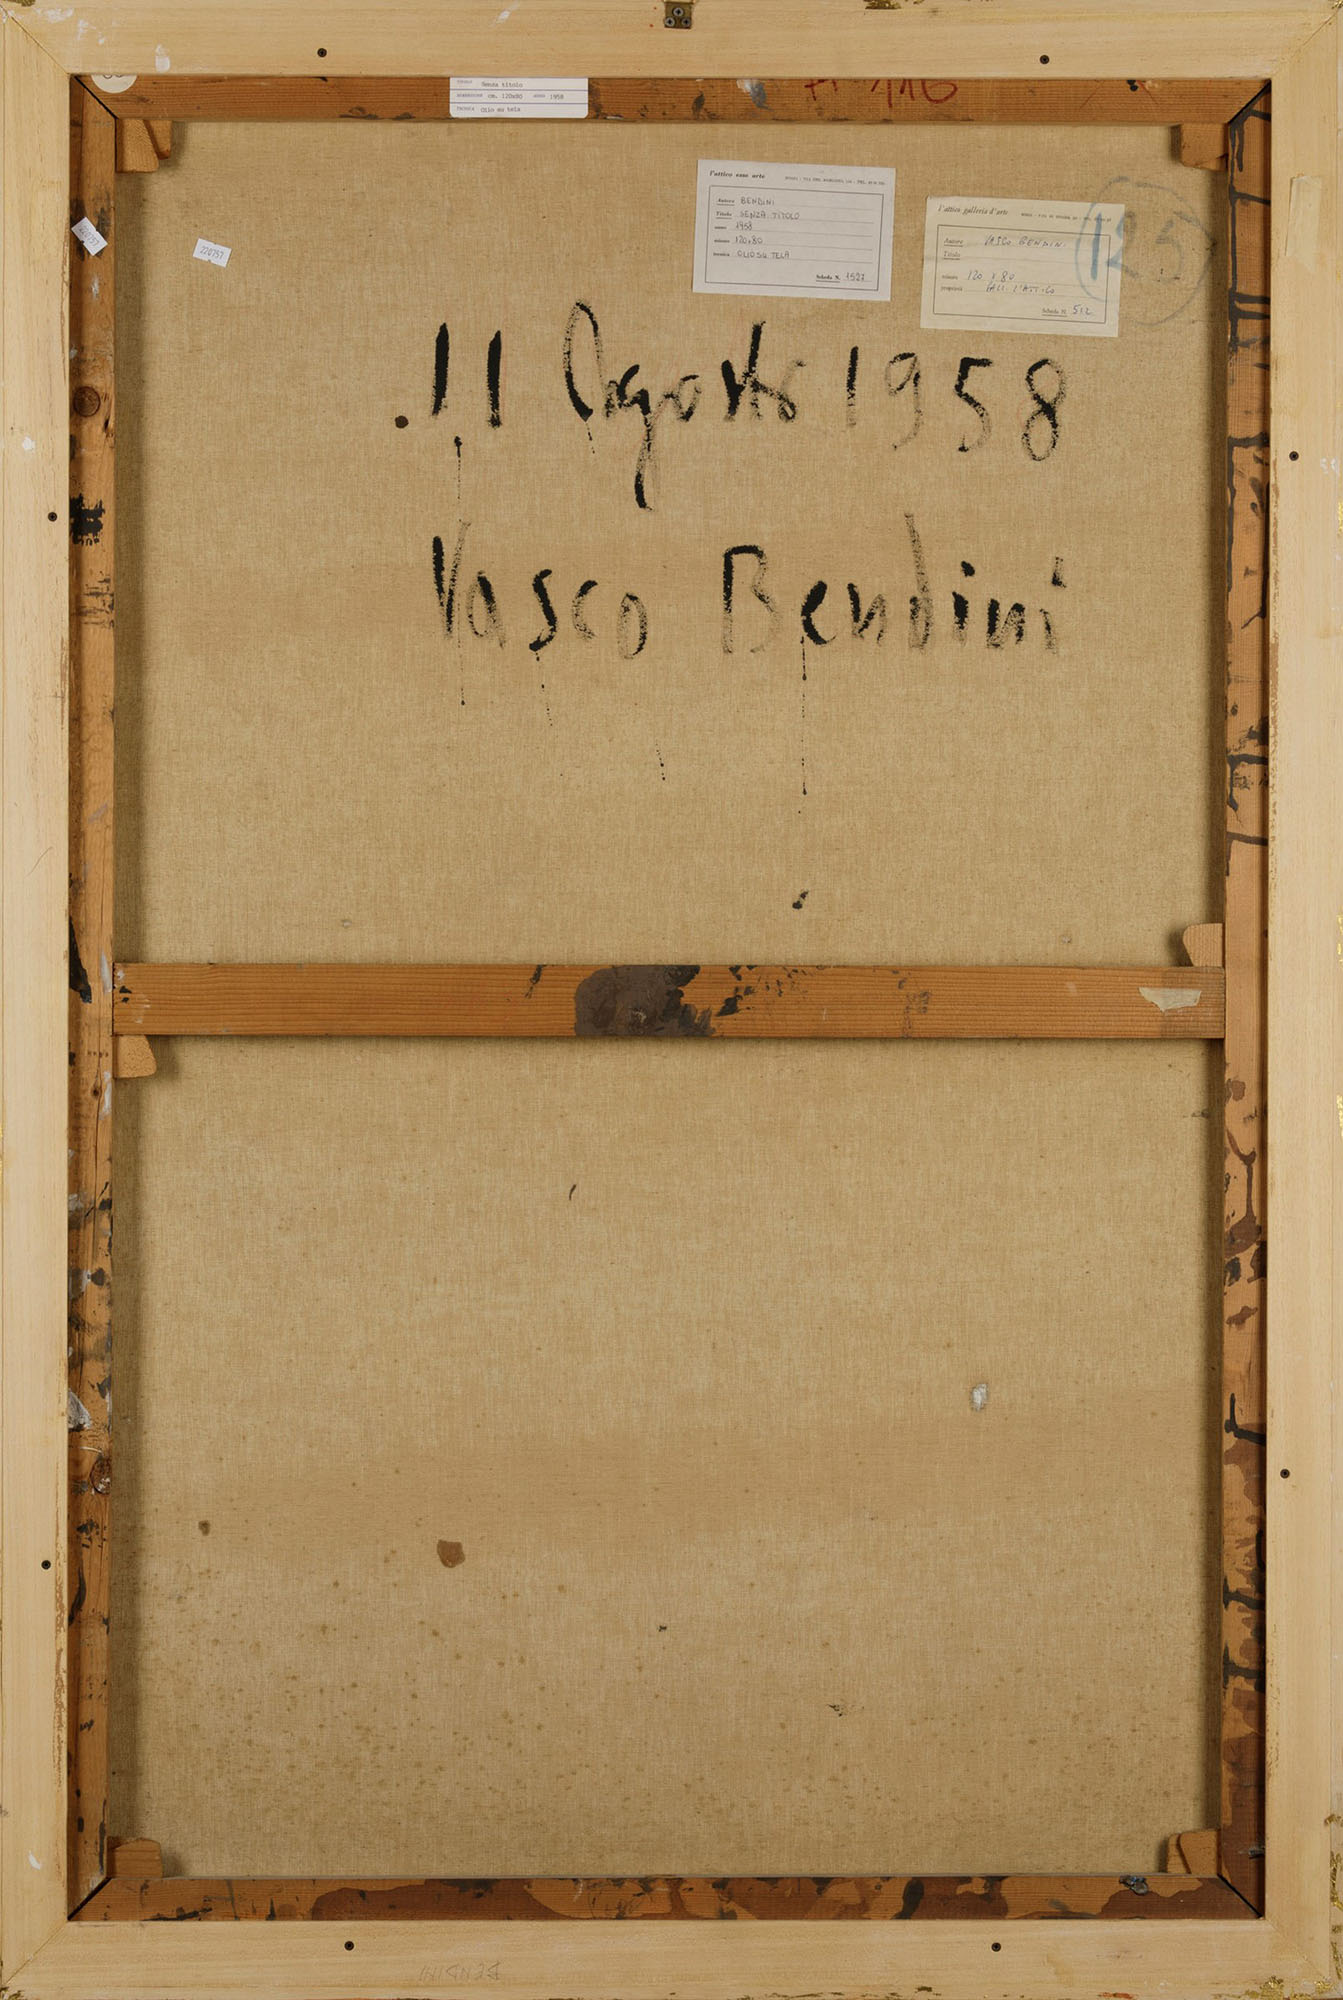 TITOLO Senza titolo
DIMENSIONI cm. 120x80 ANNO 1958
TECNICA Olio su tela
A 116
220757
220757
l'attico esse arte
Autore BENDINI
Titolo SENZA TITOLO
anno 1958
misure 120x80
tecnica OLIO SU TELA
Scheda N. 1527
l'attico galleria d'arte
Autore VASCO BENDINI
Titolo
misure 120 x 80
proprietà GALL. L'ATTICO
Scheda N. 512
125
11 Agosto 1958
Vasco Bendini
BENDINI